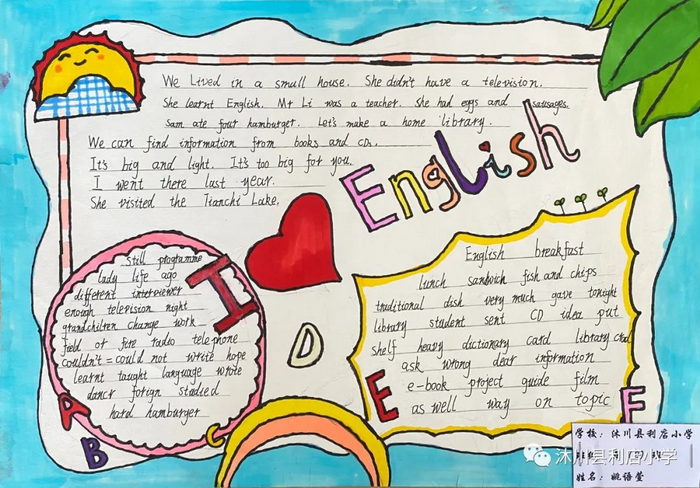 We Lived in a small house. She didn't have a television.
She learnt English. Mr Li was a teacher. She had eggs and sausages.
Sam ate four hamburger. Let's make a home library.
We can find information from books and CDs.
It's big and light. It's too big for you.
I went there last year.
She visited the Tianchi Lake.
I
English
still programme
lady life ago
different interviewer
enough television night
grandchilren change work
field or fire radio telephone
couldn't = could not write hope
learnt taught language wrote
dancr forign studied
hard hamburger
English breakfast
lunch sandwich fish and chips
traditional dish very much gave tonight
library student sent CD idea put
shelf heavy dictionary card library card
ask wrong dear information
e-book project guide film
as well way on topic
A
B
C
D
E
F
学校：沐川县利店小学
姓名：姚语萱
沐川县利店小学